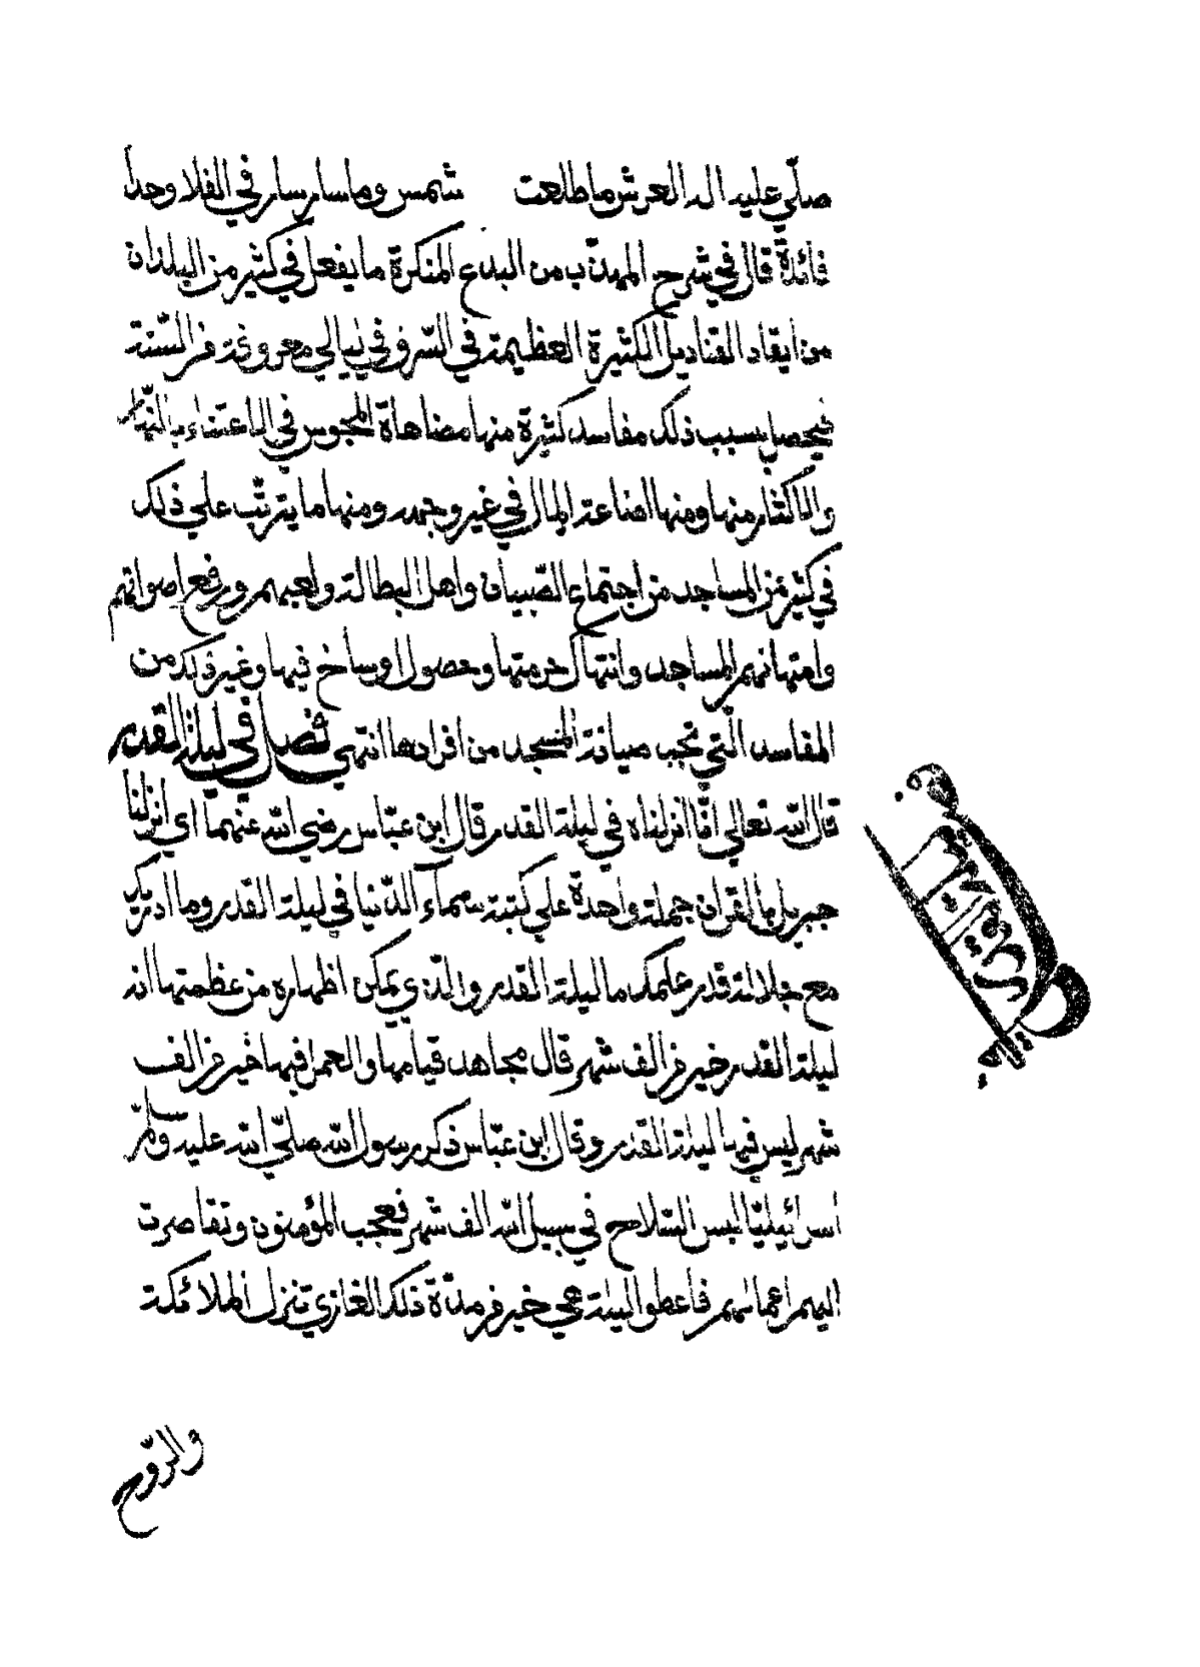 صلّي عليه اله العرش ما طلعت شمس وما سار سار في الفلا وحدا
فائدة قال في شرح المهذّب من البدع المنكرة ما يفعل في كثير من البلدان
من ايقاد القناديل الكثيرة العظيمة في السّرف في ليالي معروفة من السّنة
فيحصل بسبب ذلك مفاسد كثيرة منها مضاهاة المجوس في الاعتناء بالنّار
والاكثار منها ومنها اضاعة المال في غير وجهه ومنها ما يترتّب علي ذلك
في كثير من المساجد من اجتماع الصّبيان واهل البطالة ولعبهم ورفع اصواتهم
وامتهانهم المساجد وانتهاك حرمتها وحصول اوساخ فيها وغير ذلك من
المفاسد الّتي تجب صيانة المسجد من افرادها انتهي فصل في ليلة القدر
قال اللّه تعالي انّا انزلناه في ليلة القدر قال ابن عبّاس رضي اللّه عنهما اي انزلنا
جبريل بالقران جملة واحدة علي كتبة سمآء الدّنيا في ليلة القدر وما ادريك
مع جلالة قدر علمك ما ليلة القدر والّذي يمكن اظهاره من عظمتها انه
ليلة القدر خير من الف شهر قال مجاهد قيامها والعمل فيها خير من الف
شهر ليس فيها ليلة القدر وقال ابن عبّاس ذكر رسول اللّه صلّي اللّه عليه وسلّم
اسرائيليّا لبس السّلاح في سبيل اللّه الف شهر فعجب المؤمنون وتقاصرت
اليهم اعمالهم فاعطوا ليلة هي خير من مدّة ذلك الغازي تنزل الملائكة
والرّوح